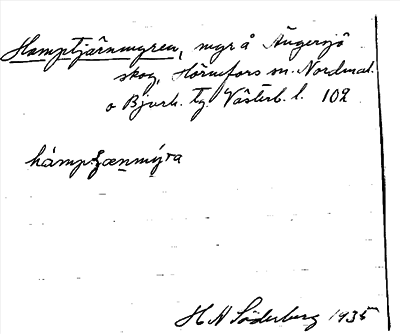 Hamptjärnmyren, myr å Ängersjö
skog, Hörnefors sn. Nordmal.
o Bjurh. tg. Västerb. l. 102
H A Söderberg 1935